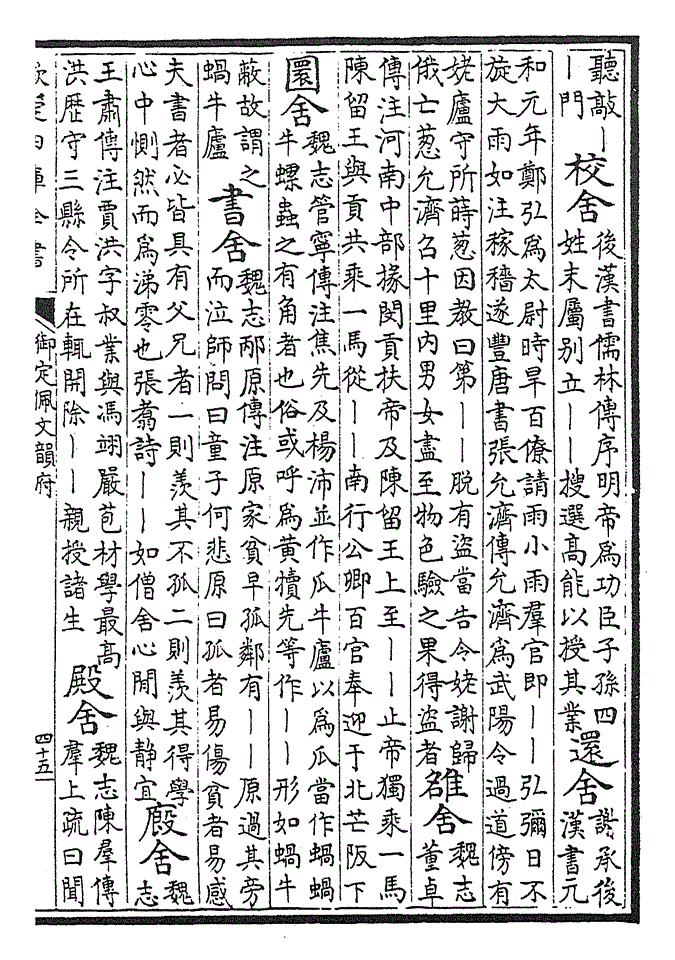 聽敲｜
｜門
校舍
後漢書儒林傳序明帝爲功臣子孫四
姓末屬别立｜｜搜選高能以授其業
還舍
謝承後
漢書元
和元年鄭弘爲太尉時旱百僚請雨小雨羣官即｜｜弘彌日不
旋大雨如注稼穡遂豐唐書張允濟傳允濟爲武陽令過道傍有
姥廬守所蒔葱因教曰第｜｜脱有盜當告令姥謝歸
俄亡葱允濟召十里内男女盡至物色驗之果得盜者
雒舍
魏志
董卓
傳注河南中部掾閔貢扶帝及陳留王上至｜｜止帝獨乘一馬
陳留王與貢共乘一馬從｜｜南行公卿百官奉迎于北芒阪下
圜舍
魏志管寧傳注焦先及楊沛並作瓜牛廬以爲瓜當作蝸蝸
牛螺蟲之有角者也俗或呼爲黄犢先等作｜｜形如蝸牛
蔽故謂之
蝸牛廬
書舍
魏志邴原傳注原家貧早孤鄰有｜｜原過其旁
而泣師問曰童子何悲原曰孤者易傷貧者易感
夫書者必皆具有父兄者一則羨其不孤二則羨其得學
心中惻然而爲涕零也張翥詩｜｜如僧舍心閒與静宜
廏舍
魏
志
王肅傳注賈洪字叔業與馮翊嚴苞材學最高
洪歴守三縣令所在輒開除｜｜親授諸生
殿舍
魏志陳羣傳
羣上疏曰聞
欽定四庫全書
御定佩文韻府
四十五